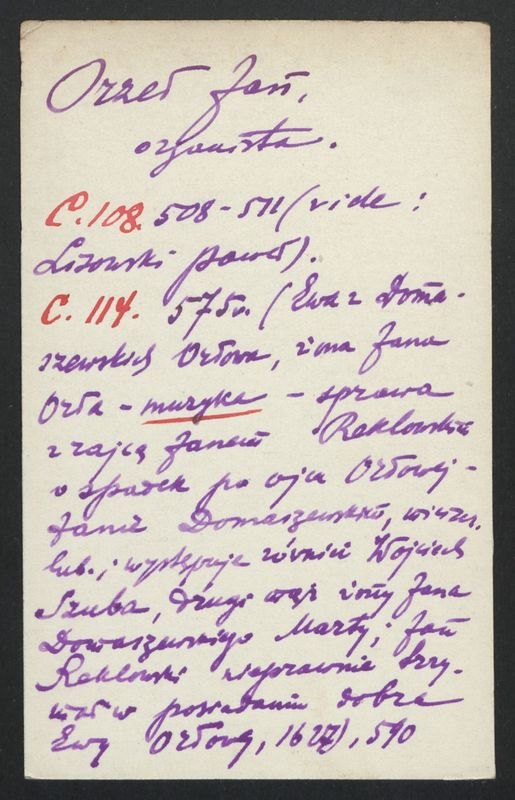 Orzeł Jan,
organista.
C. 108. 508-511 (vide:
Lisowski Paweł).
C. 114. 575v. (Ewa z Doma-
szewskich Orłowa, żona Jana
Orła - muzyka - sprawa
z rajcą Janem Reklowskim
o spadek po ojcu Orłowej -
Janie Domaszewskim, mieszcz.
lub.; występuje również Wojciech
Szuba, drugi mąż żony Jana
Domaszewskiego Marty; Jan
Reklowski nieprawnie trzy-
mał w posiadaniu dobra
Ewy Orłowej, 1627), 590